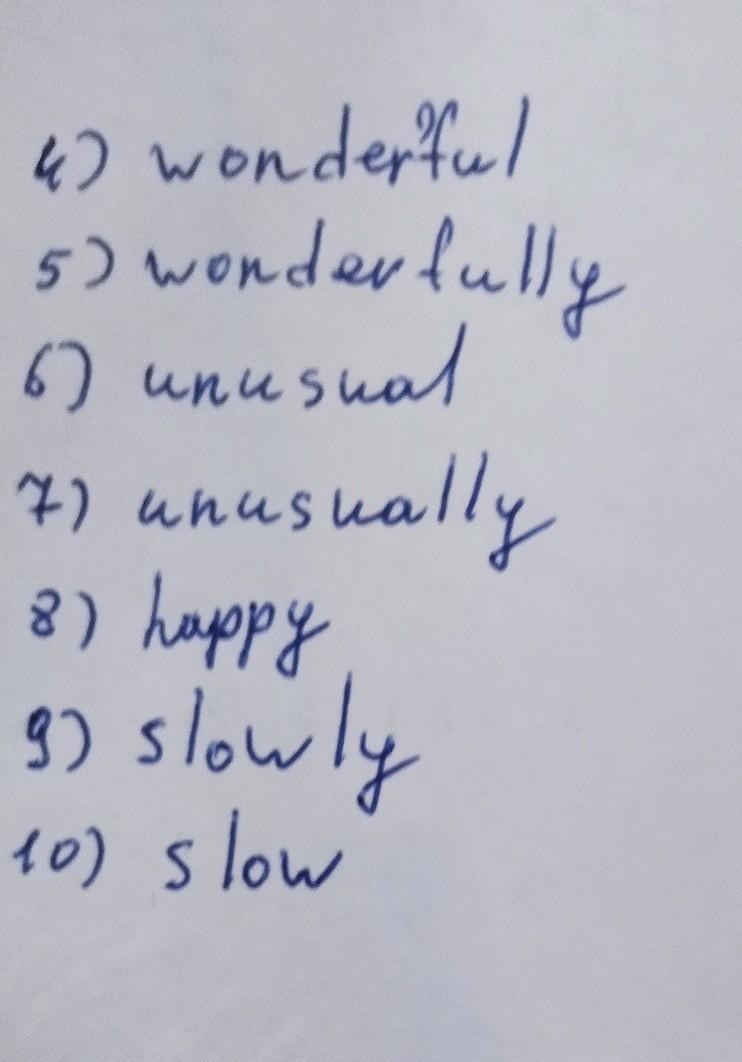 4) wonderful
5) wonderfully
6) unusual
7) unusually
8) happy
9) slowly
10) slow